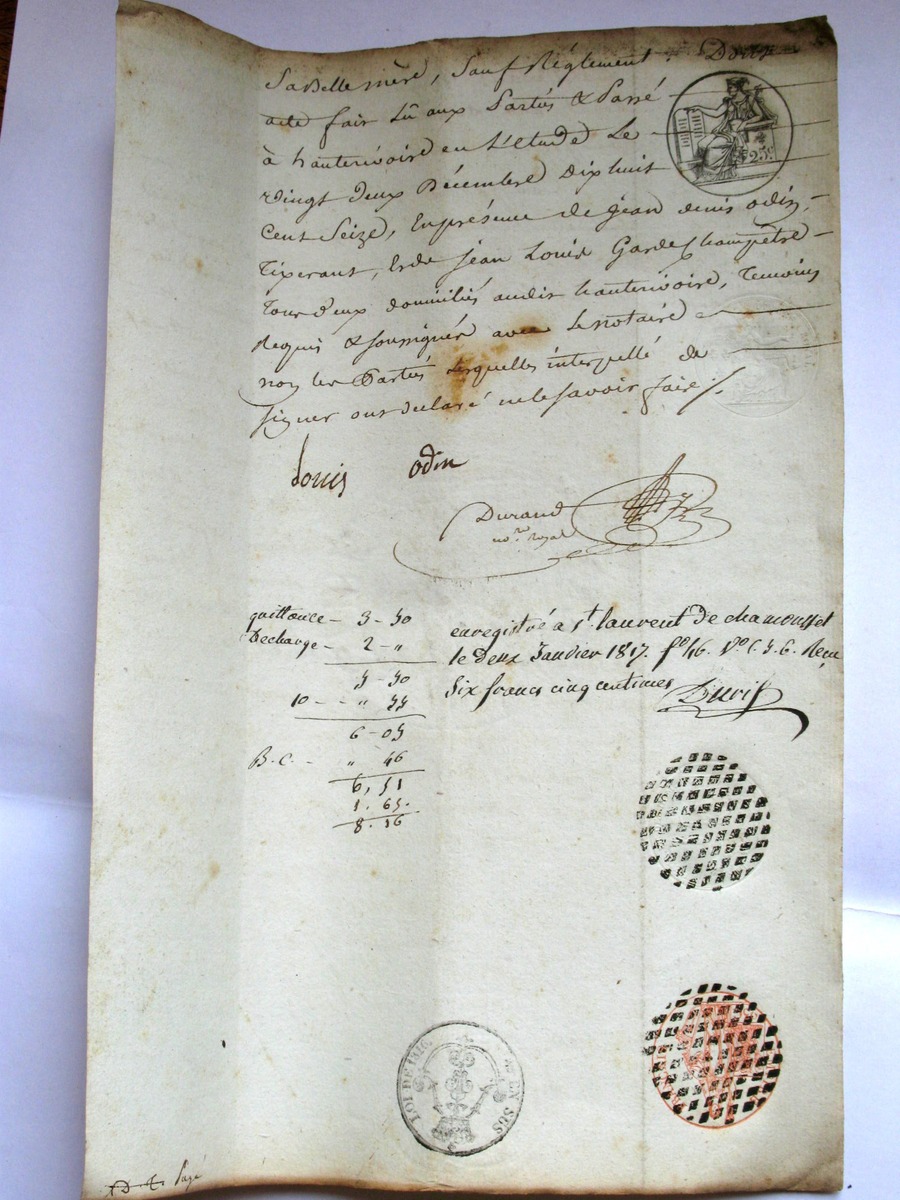 Sa Belle mère, Sauf Réglement. Dont
acte fait Lû aux Parties & Passé
à hauterivoire en L'étude Le
vingt deux Décembre Dix huit
Cent Seize, En présence de jean denis odin,
Tixerant, & de jean Louis Garde Champêtre
Tous deux domiciliés audit hauterivoire, Temoins
Requis & soussignés avec Le notaire
non les Parties lesquelles interpellé de
signer ont declaré ne le savoir faire ./.
Louis odin
Durand
no.re royal
quittance - 3 - 50
Décharge - 2 - "
5 - 50
10 - - " 55
6 - 05
B. C. - " 46
6, 51
1. 65.
8. 16
enregistré a St. laurent de chamousset
le deux Janvier 1817. fo 16. Vo C. 5. 6. Recu
Six francs cinq centimes
25 c.
LOI DE 1816.
EN SUS
Payé